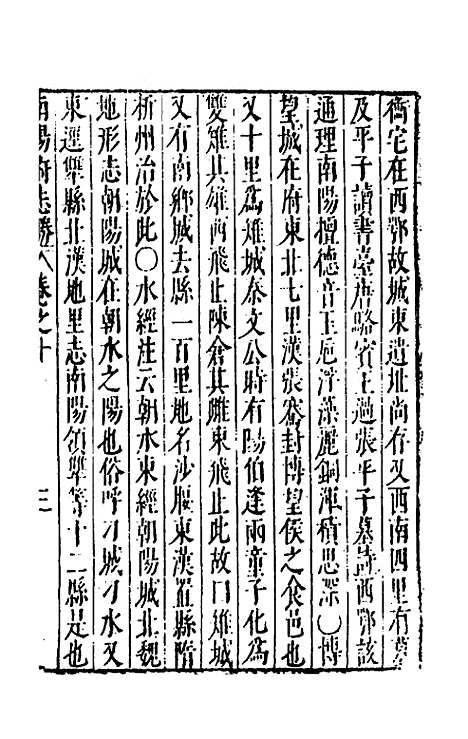 衡宅在西鄂故城東遺址尚存又西南四里有
及平子讀書臺唐駱賓王過張平子墓詩西鄂該
通理南陽擅德音玉巵浮藻麗銅渾積思深〇博
望城在府東北七里漢張騫封博望侯之食邑也
又十里爲雉城秦文公時有陽伯逢兩童子化爲
雙雉其雄南飛止陳倉其雌東飛止此故曰雉城
又有南鄉城去縣一百里地名沙堰東漢置縣隋
析州治於此〇水經注云朝水東經朝陽城北魏
地形志朝陽城在朝水之陽也俗呼刁城刁水又
東逕犨縣北漢地里志南陽領犨等十二縣是也
南陽府志勝 卷之十 三